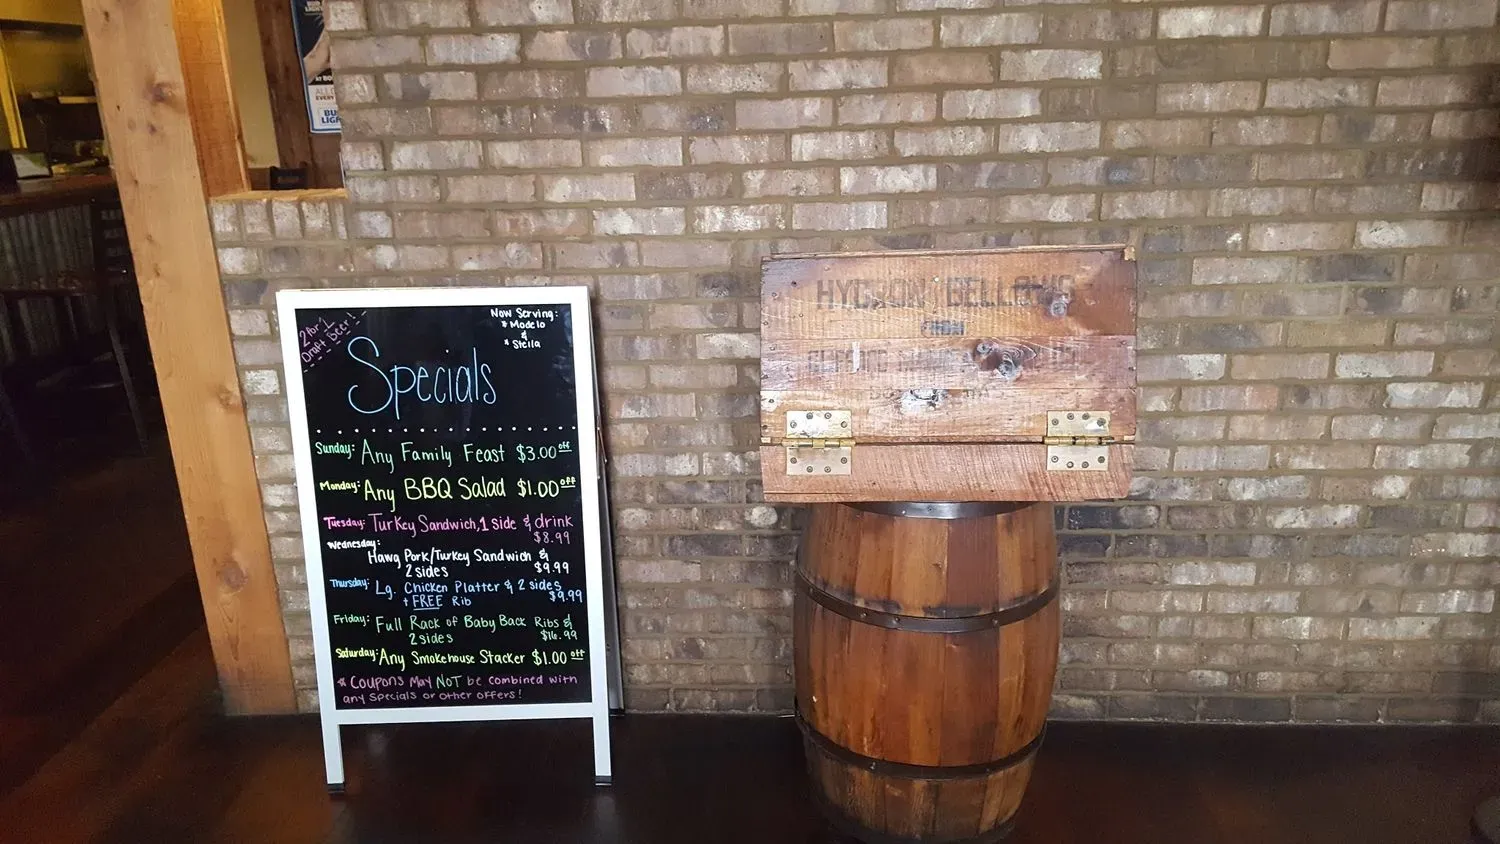 BUD
LIGHT
BUD
LIGHT
2 for 1
Draft Beer!
Now Serving:
* Modelo
&
* Stella
Specials
Sunday: Any Family Feast $3.00 off
Monday: Any BBQ Salad $1.00 off
Tuesday: Turkey Sandwich, 1 side & drink
$8.99
Wednesday:
Hawg Pork/Turkey Sandwich &
2 sides $9.99
Thursday: Lg. Chicken Platter & 2 sides
+ FREE Rib $9.99
Friday: Full Rack of Baby Back Ribs &
2 sides $16.99
Saturday: Any Smokehouse Stacker $1.00 off
* Coupons May NOT be combined with
any Specials or other offers!
HYDRON BELLOWS
FROM